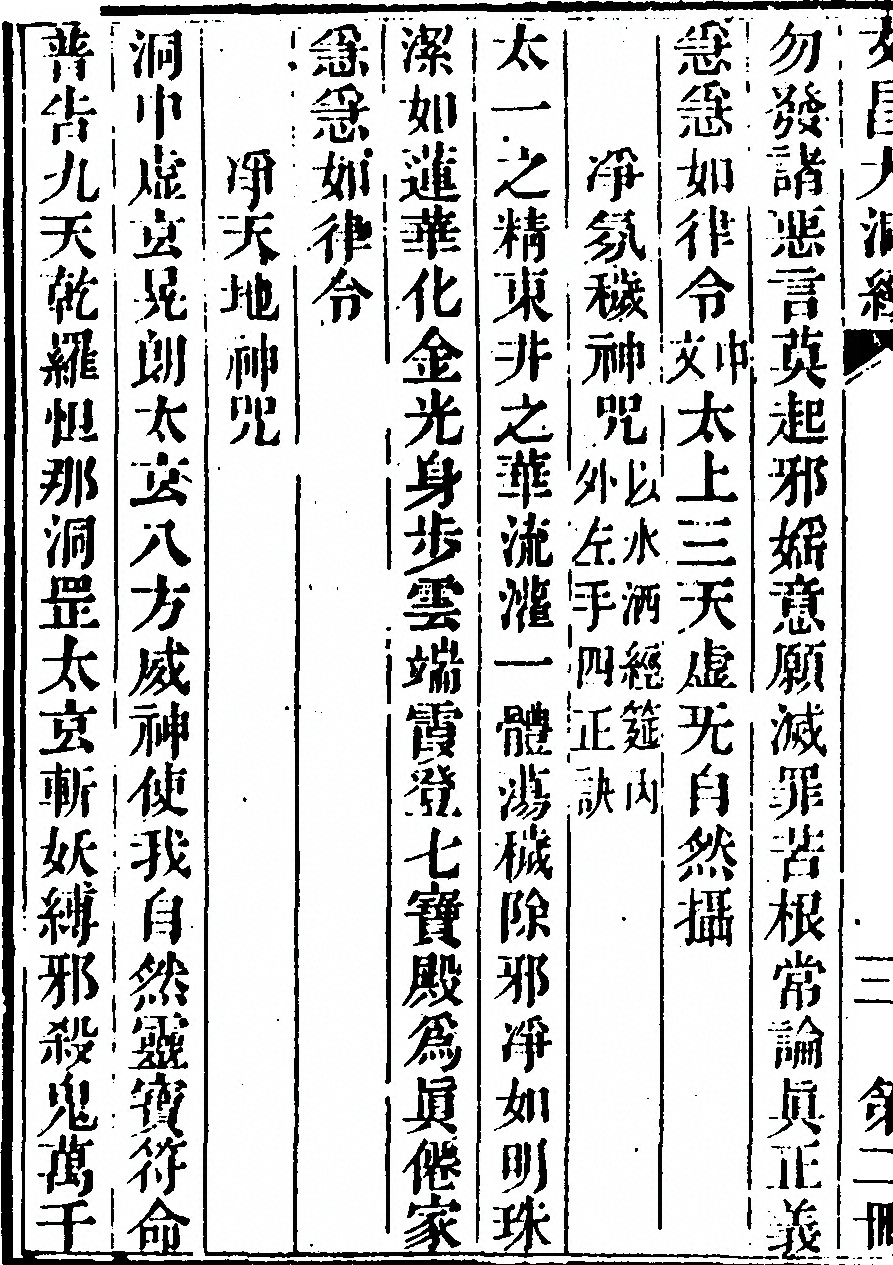 文昌大洞經 三 第二冊
勿發諸惡言莫起邪婬意願滅罪苦根常論眞正義
急急如律令中文太上三天虚无自然攝
凈氛穢神咒以水洒經筵内外左手四正訣
太一之精東井之華流灌一體蕩穢除邪凈如明珠
潔如蓮華化金光身步雲端霞登七寶殿爲眞僊家
急急如律令
凈天地神咒
洞中虚玄晃朗太玄八方威神使我自然靈寶符命
普告九天乾羅怛那洞罡太玄斬妖縛邪殺鬼萬千